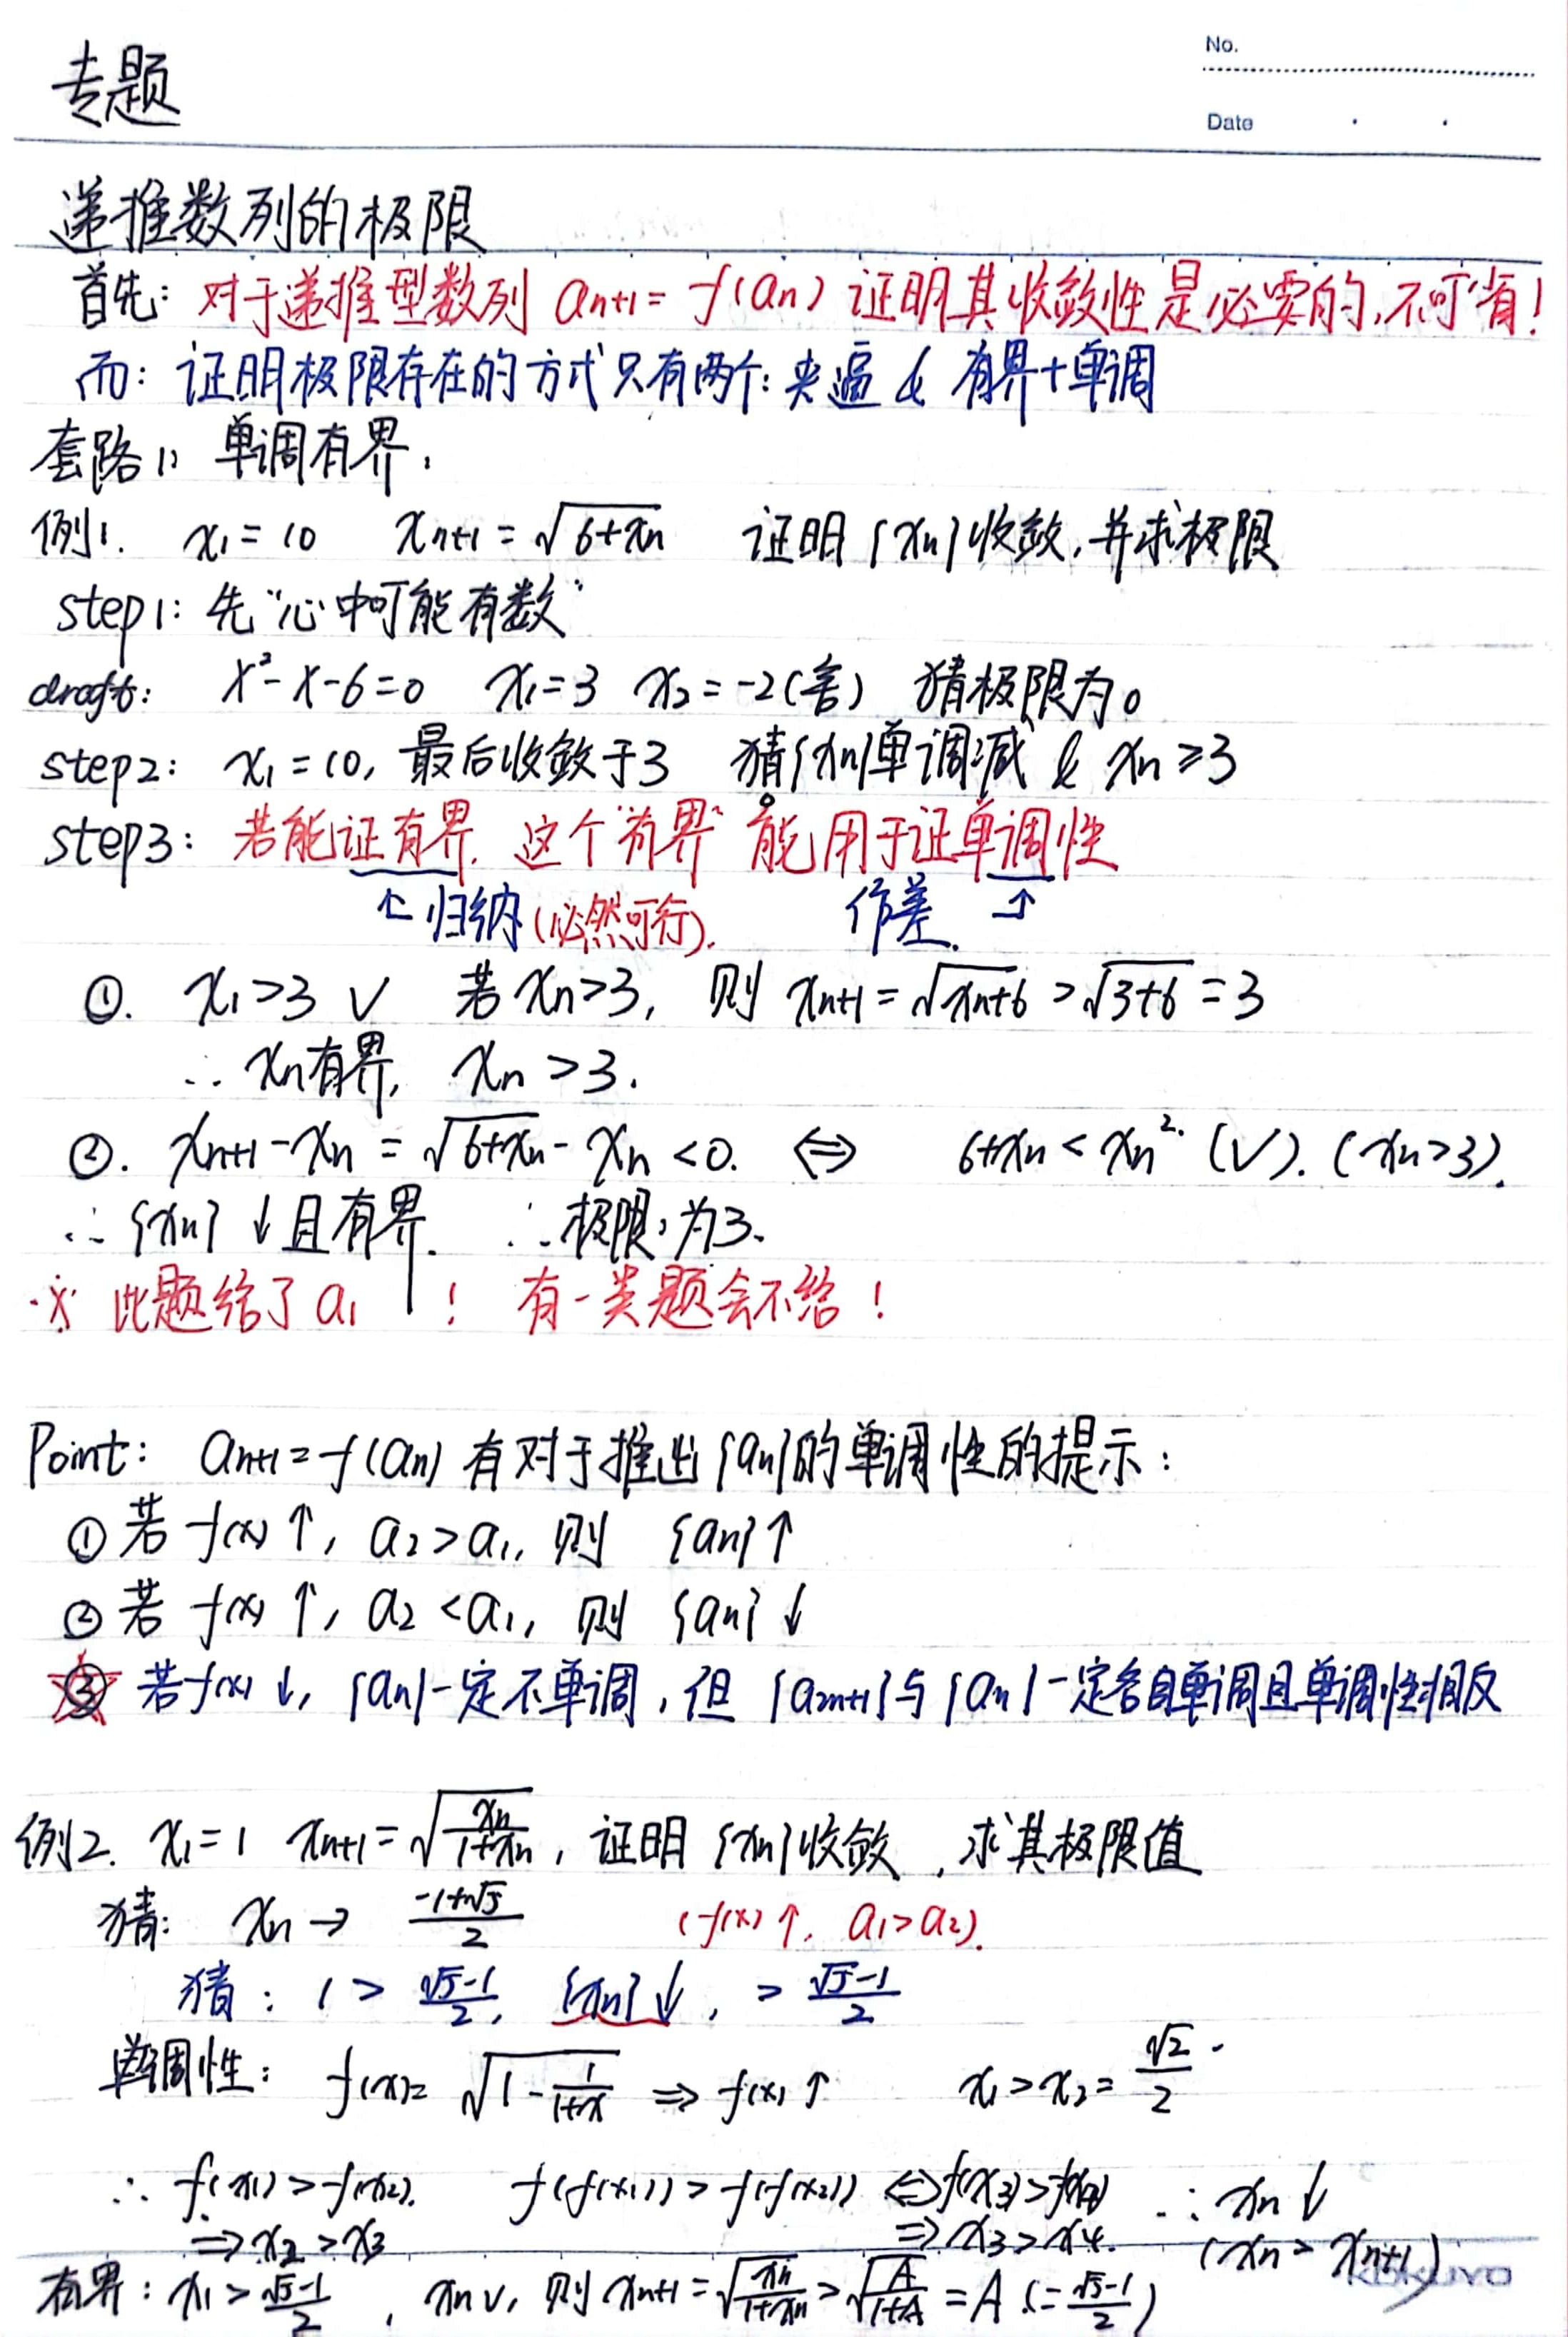 No.
专题
Date
递推数列的极限
首先: 对于递推型数列 aₙ₊₁ = f(aₙ) 证明其收敛性是必要的,不可省!
而: 证明极限存在的方式只有两个: 夹逼 & 有界+单调
套路1) 单调有界.
例1. x₁ = 10 xₙ₊₁ = √(6+xₙ) 证明{xₙ}收敛,并求极限
step1: 先"心中可能有数"
draft: x²-x-6=0 x₁=3 x₂=-2(舍) 猜极限为0
step2: x₁=10, 最后收敛于3 猜{xₙ}单调减 & xₙ≥3
step3: 若能证有界. 这个"有界"能用于证单调性
↑归纳(必然可行). 作差. ↑
①. x₁>3 √ 若xₙ>3, 则 xₙ₊₁=√(xₙ+6) > √(3+6) = 3
∴ xₙ有界, xₙ>3.
②. xₙ₊₁-xₙ = √(6+xₙ) - xₙ <0. ⇔ 6+xₙ < xₙ². (√). (xₙ>3).
∴ {xₙ} ↓且有界. ∴极限为3.
※ 此题给了a₁ ! 有一类题会不给!
Point: aₙ₊₁=f(aₙ) 有对于推出{aₙ}的单调性的提示:
①若f(x)↑, a₂>a₁, 则 {aₙ}↑
②若 f(x)↑, a₂<a₁, 则 {aₙ}↓
③ 若f(x)↓, {aₙ}一定不单调, 但 {a₂ₙ₊₁}与{a₂ₙ}一定各自单调且单调性相反
例2. x₁=1 xₙ₊₁=√(xₙ/(1+xₙ)), 证明{xₙ}收敛, 求其极限值
猜: xₙ→ (-1+√5)/2 (f(x)↑, a₁>a₂).
猜: 1 > (√5-1)/2, {xₙ}↓, > (√5-1)/2
单调性: f(x)= √(1-1/(1+x)) ⇒ f(x)↑ x₁>x₂= √2/2.
∴ f(x₁)>f(x₂). f(f(x₁))>f(f(x₂)) ⇔ ∴ xₙ↓
⇒x₂>x₃ ⇒x₃>x₄. (xₙ>xₙ₊₁)
有界: x₁> (√5-1)/2, xₙ√, 则xₙ₊₁=√(xₙ/(1+xₙ)) > √(A/(1+A)) = A (= (√5-1)/2)
KOKUYO